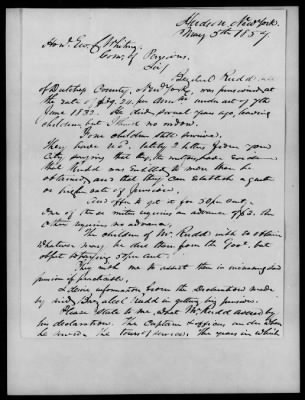 Hudson, New York.
May 5th 1854.
Hon. Geo. C. Whiting,
Com. of Pensions,
Sir,
Bezaleel Rudd late
of Dutchess County, New York, was pensioned at
the rate of $ 24. per Ann. under act of 7th
June 1832. He died several years ago, leaving
children, but I think no widow.
Some children still survive.
They have rec'd. lately 2 letters from your
City, saying that they, the writers, have evidence
that Rudd was entitled to more than he
obtained, and that they can establish a greater
or higher rate of Pension.
And offer to get it for 50 per cent.
One of these writers requires an advance of $3. the
other requires no advance.
The children of Mr. Rudd wish to obtain
whatever may be due them from the Gov't. but
object to paying 50 per cent.
They wish me to assist them in increasing said
pension if practicable.
I desire information from the Declaration made
by said Bezaleel Rudd in getting his pension.
Please state to me, what Mr. Rudd asserted by
his declaration. The Captains & officers under whom
he served. The tours of service. The years in which